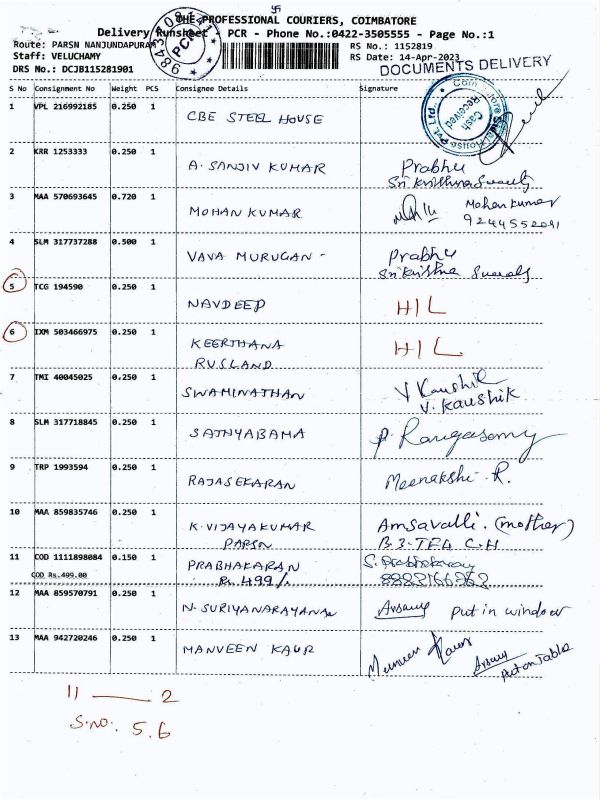 THE PROFESSIONAL COURIERS, COIMBATORE
Delivery Runsheet - PCR - Phone No.:0422-3505555 - Page No.:1
Route: PARSN NANJUNDAPURAM
RS No.: 1152819
Staff: VELUCHAMY
RS Date: 14-Apr-2023
DRS No.: DCJB115281901
DOCUMENTS DELIVERY
PCR
S No Consignment No Weight PCS Consignee Details Signature
1 VPL 216992185 0.250 1 CBE STEEL HOUSE
Cash Received
2 KRR 1253333 0.250 1 A. SANJIV KUMAR Prabhu
Sri Krishna
3 MAA 570693645 0.720 1 MOHAN KUMAR Mohan Kumar
9244552091
4 SLM 317737288 0.500 1 VAVA MURUGAN - Prabhu
Sri Krishna
5 TCG 194590 0.250 1 NAVDEEP H/L
6 IXM 503466975 0.250 1 KEERTHANA H/L
RUSLAND
7 TMI 40045025 0.250 1 SWAMINATHAN V Kaushik
V. Kaushik
8 SLM 317718845 0.250 1 SATHYABAMA P. Rangasamy
9 TRP 1993594 0.250 1 RAJASEKARAN Meenakshi. R.
10 MAA 859835746 0.250 1 K. VIJAYAKUMAR Amsavalli. (mother)
PARSN
11 COD 1111898084 0.150 1 PRABHAKARAN S. Prabhakaran
COD Rs.499.00 Rs. 499/.
12 MAA 859570791 0.250 1 N. SURIYANARAYANAN put in window
13 MAA 942720246 0.250 1 MANVEEN KAUR Manveen Kaur
Put on Table
11 — 2
S.no. 5.6